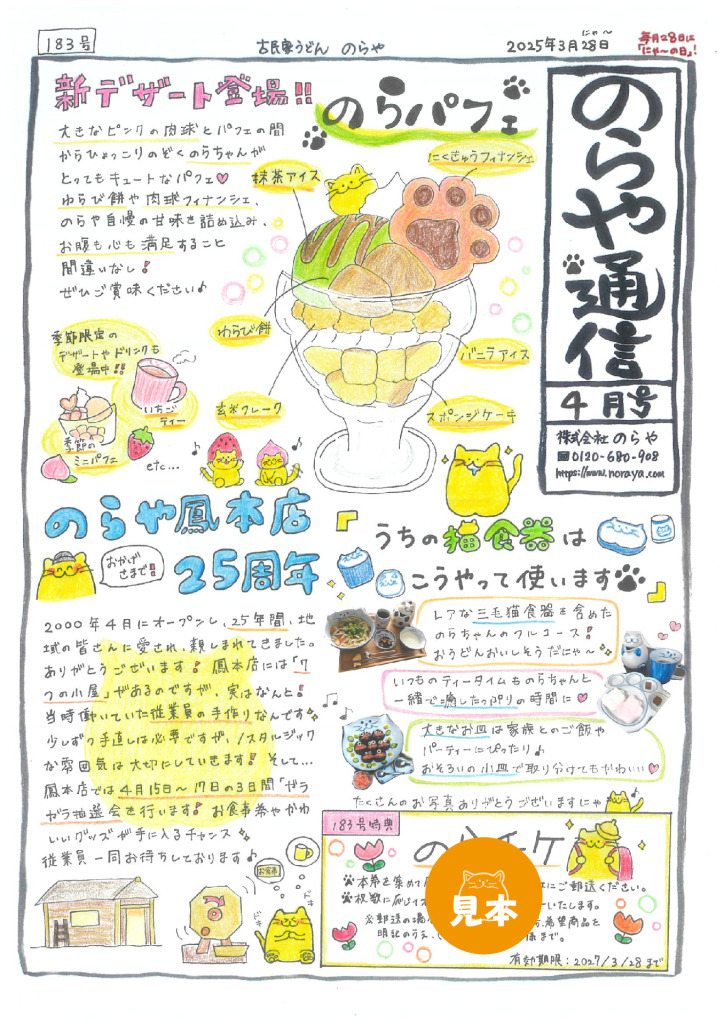 183号
古民家うどん のらや
にゃ〜
2025年3月28日
毎月28日に
「にゃ〜の日」!
のらや通信
4月号
株式会社 のらや
0120-680-908
https://www.noraya.com
新デザート登場!!
のらパフェ
大きなピンクの肉球とパフェの間
からひょっこりのぞくのらちゃんが
とってもキュートなパフェ♡
わらび餅や肉球フィナンシェ、
のらや自慢の甘味を詰め込み、
お腹も心も満足すること
間違いなし!
ぜひご賞味ください♪
抹茶アイス
にくきゅうフィナンシェ
わらび餅
バニラアイス
玄米フレーク
スポンジケーキ
季節限定の
デザートやドリンクも
登場中!!
いちご
ティー
季節の
ミニパフェ
etc...
のらや鳳本店
25周年
おかげ
さまで!
2000年4月にオープンし、25年間、地
域の皆さんに愛され、親しまれてきました。
ありがとうございます! 鳳本店には「7
つの小屋」があるのですが、実はなんと!
当時働いていた従業員の手作りなんです
少しずつ手直しは必要ですが、ノスタルジック
な雰囲気は大切にしていきます! そして...
鳳本店では4月15日〜17日の3日間「ガラ
ガラ抽選会を行います! お食事券やかわ
いいグッズが手に入るチャンス
従業員一同お待ちしております♪
お食事券
ドキ
ドキ
「うちの猫食器は
こうやって使います」
レアな三毛猫食器を含めた
のらちゃんのフルコース!
おうどんおいしそうだにゃ〜
いつものティータイムものらちゃんと
一緒で満したっぷりの時間に♡
大きなお皿は家族とのご飯や
パーティーにぴったり♪
おそろいの小皿で取り分けてもかわいい♡
たくさんのお写真ありがとうございますにゃ
183号特典
のらチケ
本券を集めて
にご郵送ください。
枚数に応じて
いたします。
※郵送の場
、希望商品を
明記のうえ、
係まで。
見本
有効期限:2027/3/28まで